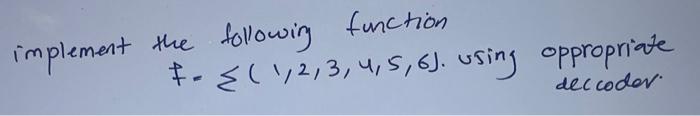 implement the followig function
f = Σ(1,2,3,4,5,6). using oppropriate
deccoder.